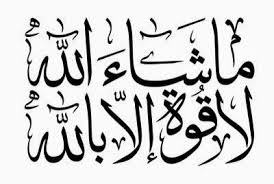 ما شاءَ اللّٰهُ
لا قُوةَ إِلّا بِاللّٰهِ